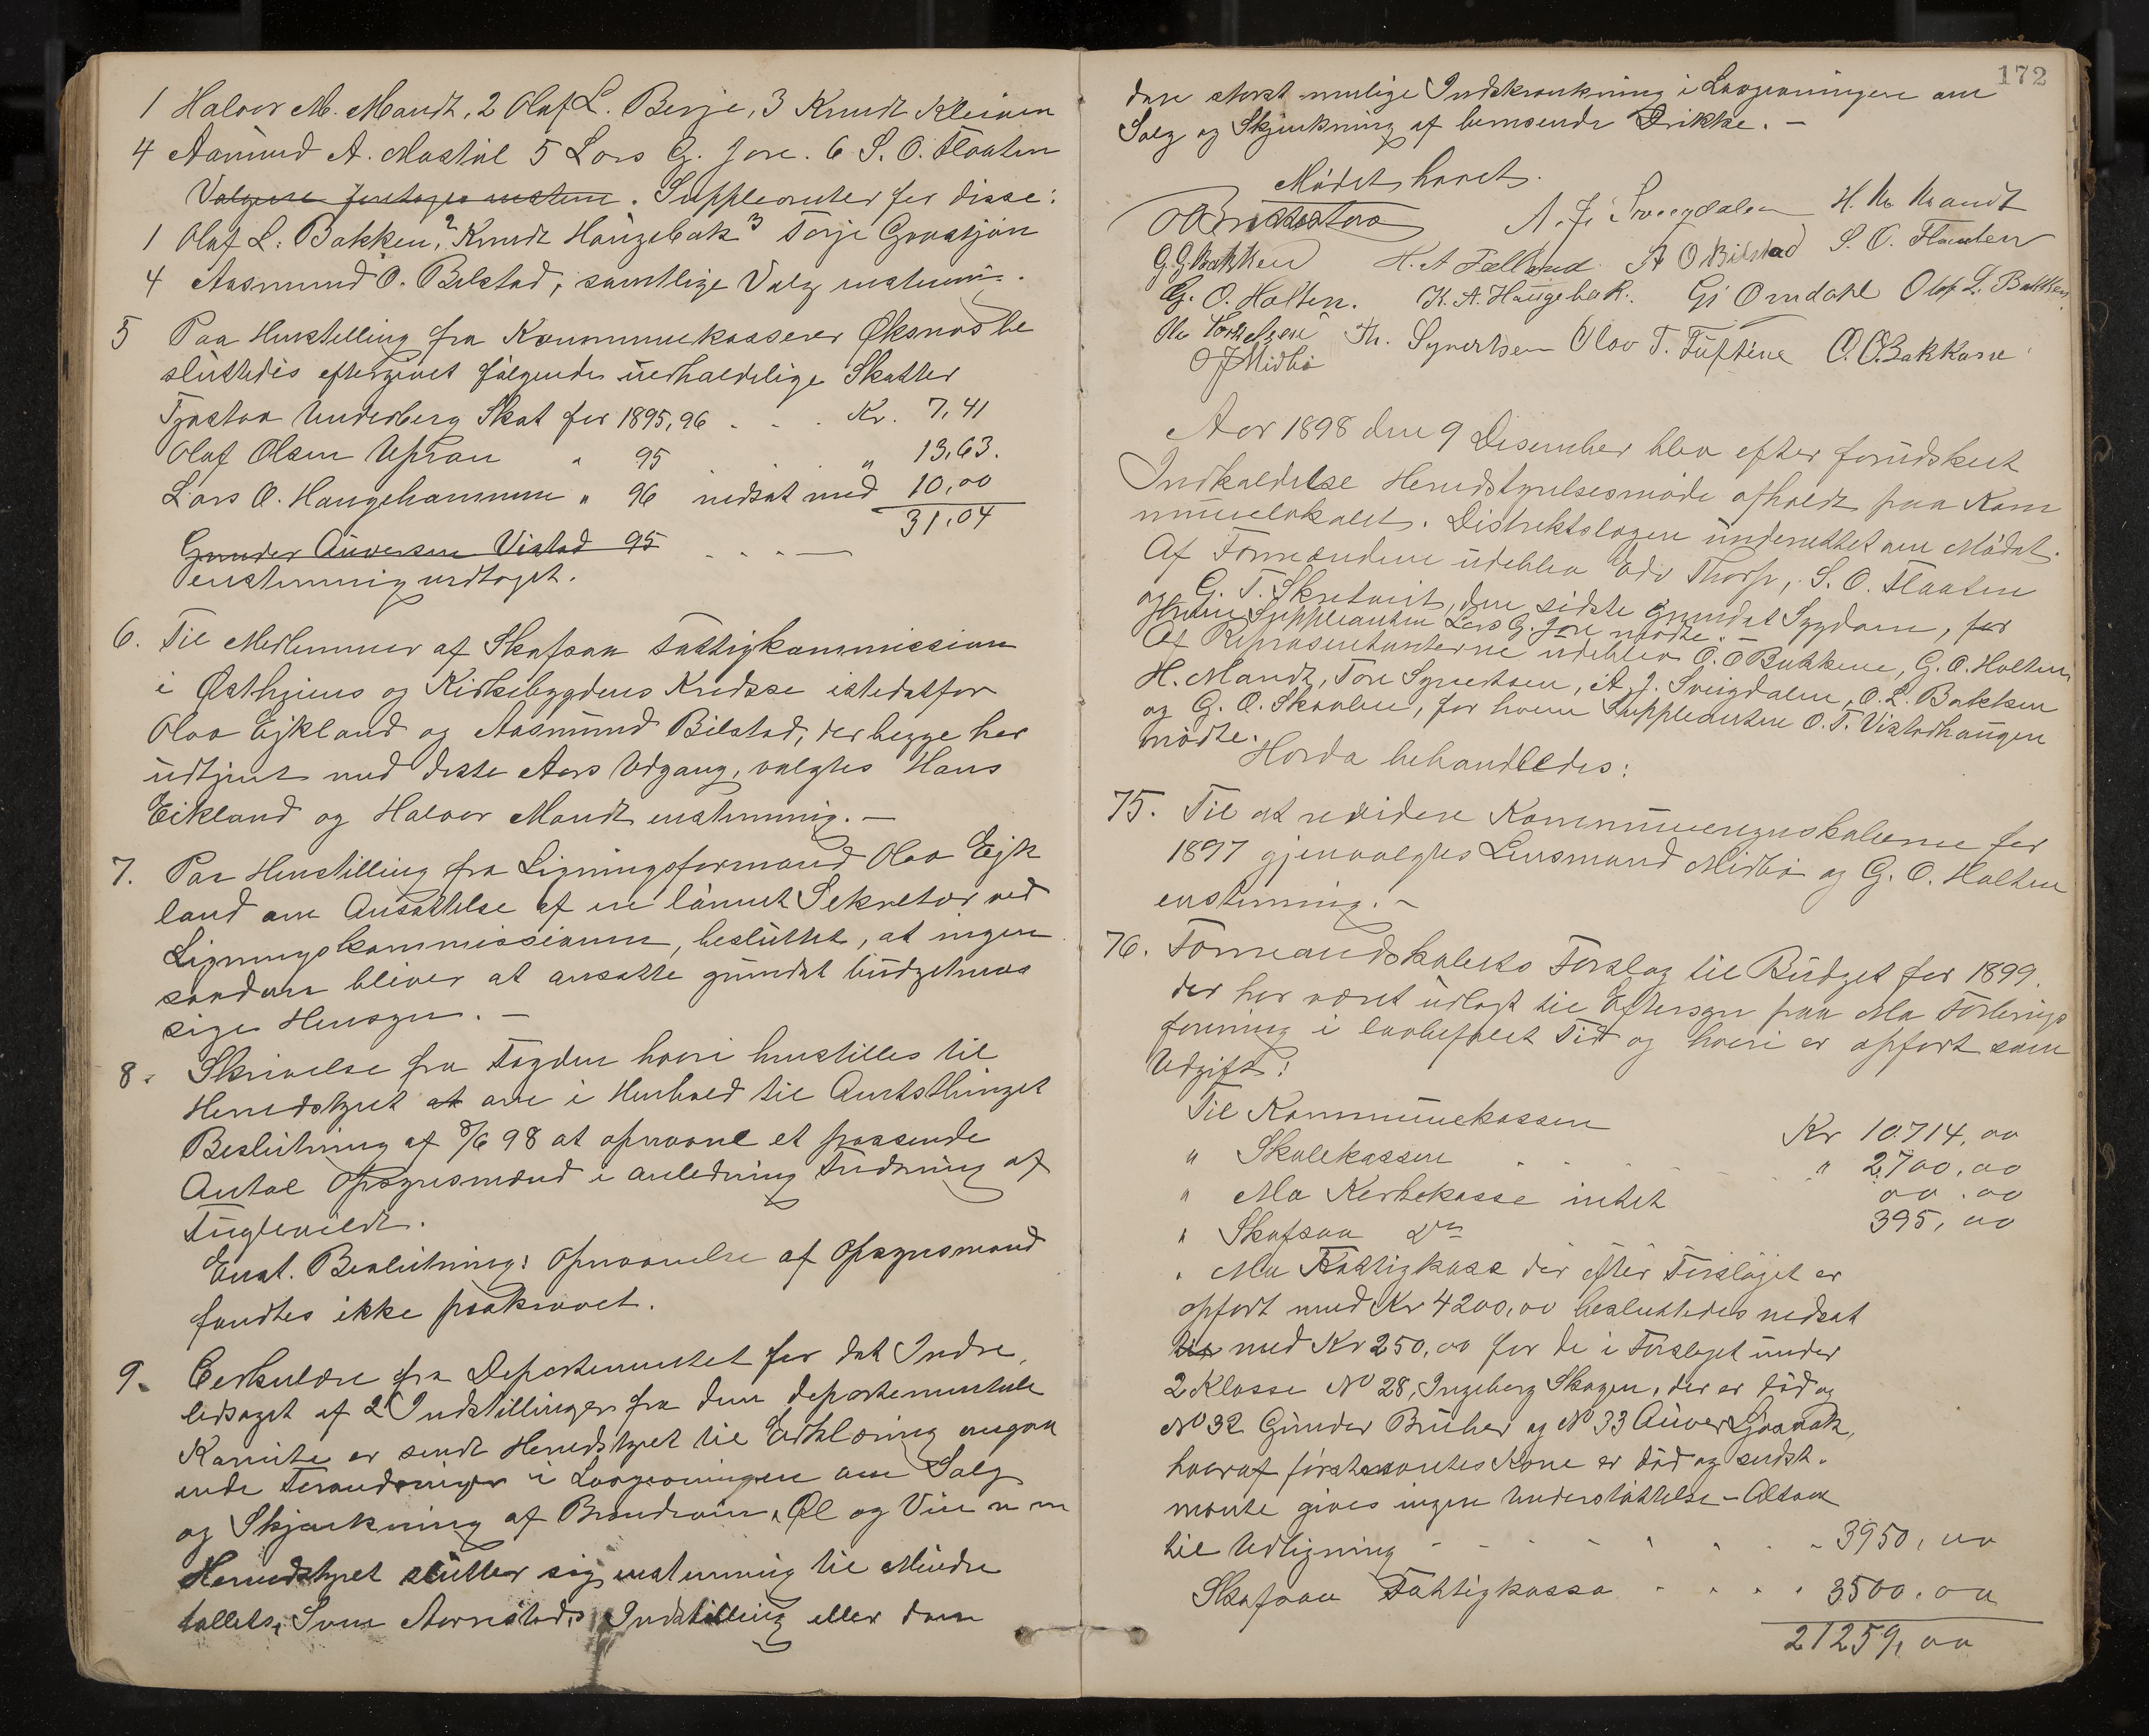 1 Halvor M. Mandt, 2 Olaf L. Berje, 3 Knudt Kleiven
4 Aamund A. Mostøl 5 Lars G. Jore. 6 S. O. Flaaten
Valgene foretoges enstem. Suppleanter for disse:
1 Olaf L. Bakken, 2 Knudt Haugebak 3 Torje Graasjøn
4 Aasmund O. Bilstad, samtlige Valg enstemm.
5 Paa Henstilling fra Kommunekasserer Øksnes be
sluttedes eftergivet følgende uerholdelige Skatter
Tjøstov Underberg Skat for 1895,96 . . . Kr. 7,41
Olaf Olsen " 95 . . . " 13,63.
Lars O. Haugehammen " 96 nedsat med 10,00
31,04
Gunder Auversen Vistad 95 . . . —
enstemmig vedtaget.
6. Til Medlemmer af Skafsaa Fattigkommission
i Østhjeims og Kirkebygdens Kredse istedetfor
Olav Eikland og Aasmund Bilstad, der begge har
udtjent med dette Aars Udgang, valgtes Hans
Eikland og Halvor Mandt enstemmig. —
7. Paa Henstilling fra Ligningsformand Olav Eik
land om Ansættelse af en lønnet Sekretær ved
Ligningskommissionen, besluttet, at ingen
saadan bliver at ansætte grundet budgetmæs
sige Hensyn. —
8. Skrivelse fra Fogden hvori henstilles til
Herredstyret at om i Henhold til Amtsthinget
Beslutning af 8/6 98 at opnævne et passende
Antal Opsynsmænd i anledning Fredning af
Fuglevildt.
Enst. Beslutning: Opnævnelse af Opsynsmænd
fandtes ikke paakrævet.
9. Cerkulære fra Departementet for det Indre,
ledsaget af 2 Indstillinger fra den departementale
Komite er sendt Herredstyret til Erklæring angaa
ende Forandringer i Lovgivningen om Salg
og Skjænkning af Brændevin, Øl og Vin m m
Herredstyret slutter sig enstemmig til Mindre
tallets, Sven Aarrestads Indstilling eller den
172
den størst mulige Indskrænkning i Lovgivningen om
Salg og Skjænkning af berusende Drikke. —
Mødet hævet.
A. J. Sveigdalen H. M. Mandt
G. G. Bakken H. A. Felland A O Bilstad S. O. Flaaten
G. O. Holten. K. A. Haugebak. G. Omdahl Olaf L. Bakken
Th. Syvertsen Olav T. Tuftene O. O. Bakkane
O J Midbø
Aar 1898 den 9 Desember blev efter forudskeet
Indkaldelse Herredstyrelsesmøde afholdt paa Kom
munelokalet. Distriktslægen underrettet om Mødet.
Af Formændene udeblev Edv Thorp, S. O. Flaaten
og G. T. Skretveit, den sidste grundet Sygdom, for
hvem Suppleanten Lars G. Jore mødte. —
Af Repræsentanterne udeblev O. O Bakkene, G. O. Holten
H. Mandt, Tore Syvertsen, A. J. Sveigdalen, O. L. Bakken
og G. O. Skaalen, for hvem Suppleanten O. T. Vistadhaugen
mødte.
Horda behandledes:
75. Til at revidere Kommuneregnskaberne for
1897 gjenvalgtes Lensmand Midbø og G. O. Holten
enstemmig. —
76. Formandskabets Forslag til Budget for 1899.
der har været udlagt til Eftersyn paa Mo Forbrugs
forening i lovbefalet Tid og hvori er opført som
Udgift:
Til Kommunekassen Kr 10714,00
" Skolekassen . . . " 2700,00
" Mo Kirkekasse intet 00.00
" Skafsaa Do 395,00
" Mo Fattigkasse der efter Forslaget er
opført med Kr 4200,00 besluttedes nedsat
til med Kr 250,00 for de i Forslaget under
2 Klasse No 28, Ingeborg Skogen, der er død og
No 32 Gunder Bruber og No 33 Auver Graavak,
hvoraf førstnævntes Kone er død og sidst-
nævnte gives ingen Understøttelse – Altsaa
til Udligning - - - - 3950,00
Skafsaa Fattigkasse . . . . 3500.00
21259,00